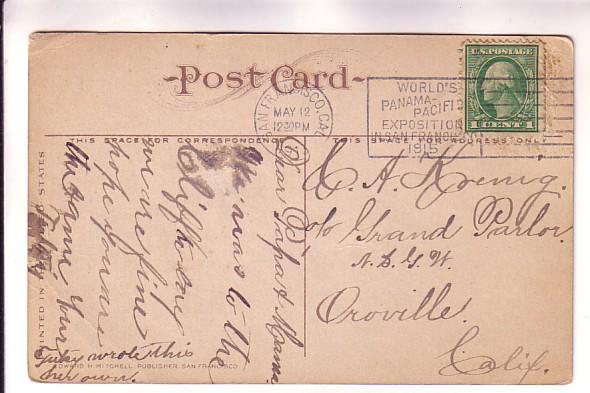 Post Card
SAN FRANCISCO, CAL.
MAY 12
12 30 PM
WORLD'S
PANAMA-
PACIFIC
EXPOSITION
IN SAN FRANCISCO
1915
U.S. POSTAGE
1 CENT 1
THIS SPACE FOR CORRESPONDENCE
THIS SPACE FOR ADDRESS ONLY
Dear Papa & Mama
We was to the
Cliff to day
we are fine
hope you are
the same Your
wrote this
her own.
C. A. Koenig
c/o Grand Parlor
N.S.G.W.
Oroville.
Calif.
PRINTED IN UNITED STATES
EDWARD H. MITCHELL, PUBLISHER, SAN FRANCISCO